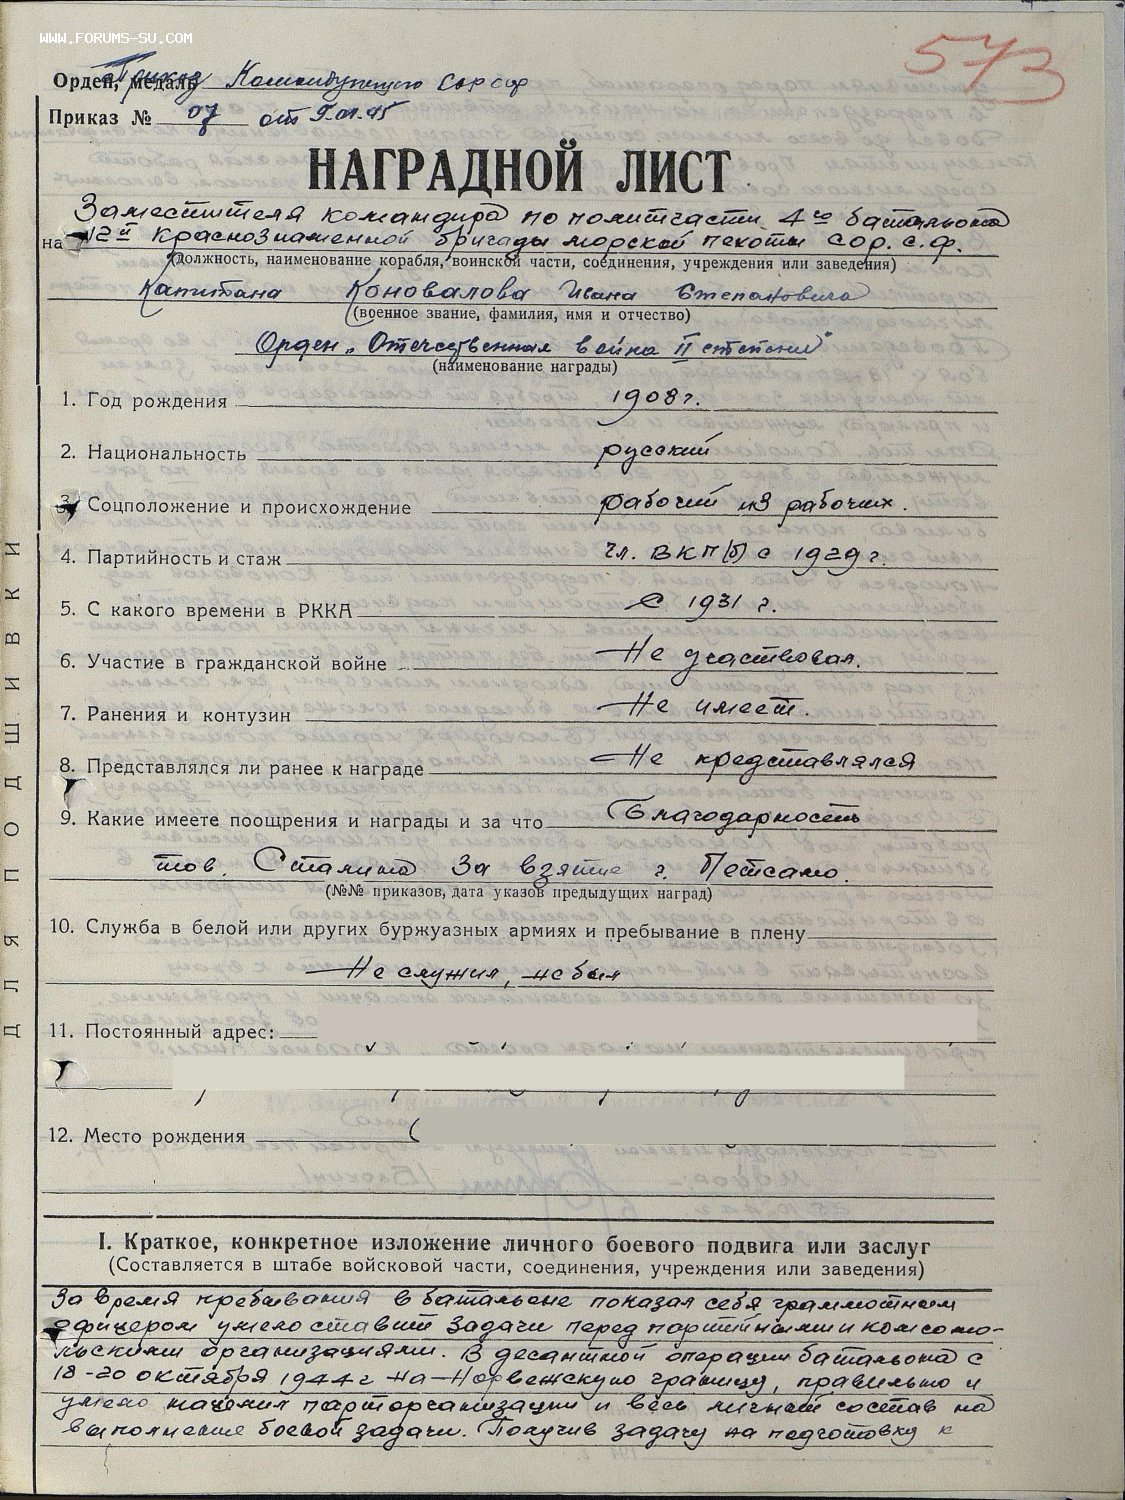 WWW.FORUMS-SU.COM
573
Орден, медаль Приказ Командующего Сор сф
Приказ № 07 от 9.01.45
НАГРАДНОЙ ЛИСТ
Заместителя командира по политчасти 4го батальона
на 12й Краснознаменной бригады морской пехоты СОР. С. Ф.
(должность, наименование корабля, воинской части, соединения, учреждения или заведения)
Капитана Коновалова Ивана Степановича
(военное звание, фамилия, имя и отчество)
Орден „Отечественная война II степени"
(наименование награды)
1. Год рождения 1908 г.
2. Национальность русский
3. Соцположение и происхождение рабочий из рабочих.
4. Партийность и стаж чл. ВКП(б) с 1929 г.
5. С какого времени в РККА С 1931 г.
6. Участие в гражданской войне Не участвовал.
7. Ранения и контузии Не имеет.
8. Представлялся ли ранее к награде Не представлялся
9. Какие имеете поощрения и награды и за что Благодарность
тов. Сталина за взятие г. Петсамо.
(№№ приказов, дата указов предыдущих наград)
10. Служба в белой или других буржуазных армиях и пребывание в плену
Не служил, не был
11. Постоянный адрес:
12. Место рождения
ДЛЯ ПОДШИВКИ
I. Краткое, конкретное изложение личного боевого подвига или заслуг
(Составляется в штабе войсковой части, соединения, учреждения или заведения)
За время пребывания в батальоне показал себя грамотным
офицером умело ставит задачи перед партийными и комсомо-
льскими организациями. В десантной операции батальона с
18-20 октября 1944 г на Норвежскую границу, правильно и
умело нацелил парторганизации и весь личный состав на
выполнение боевой задачи. Получив задачу на подготовку к